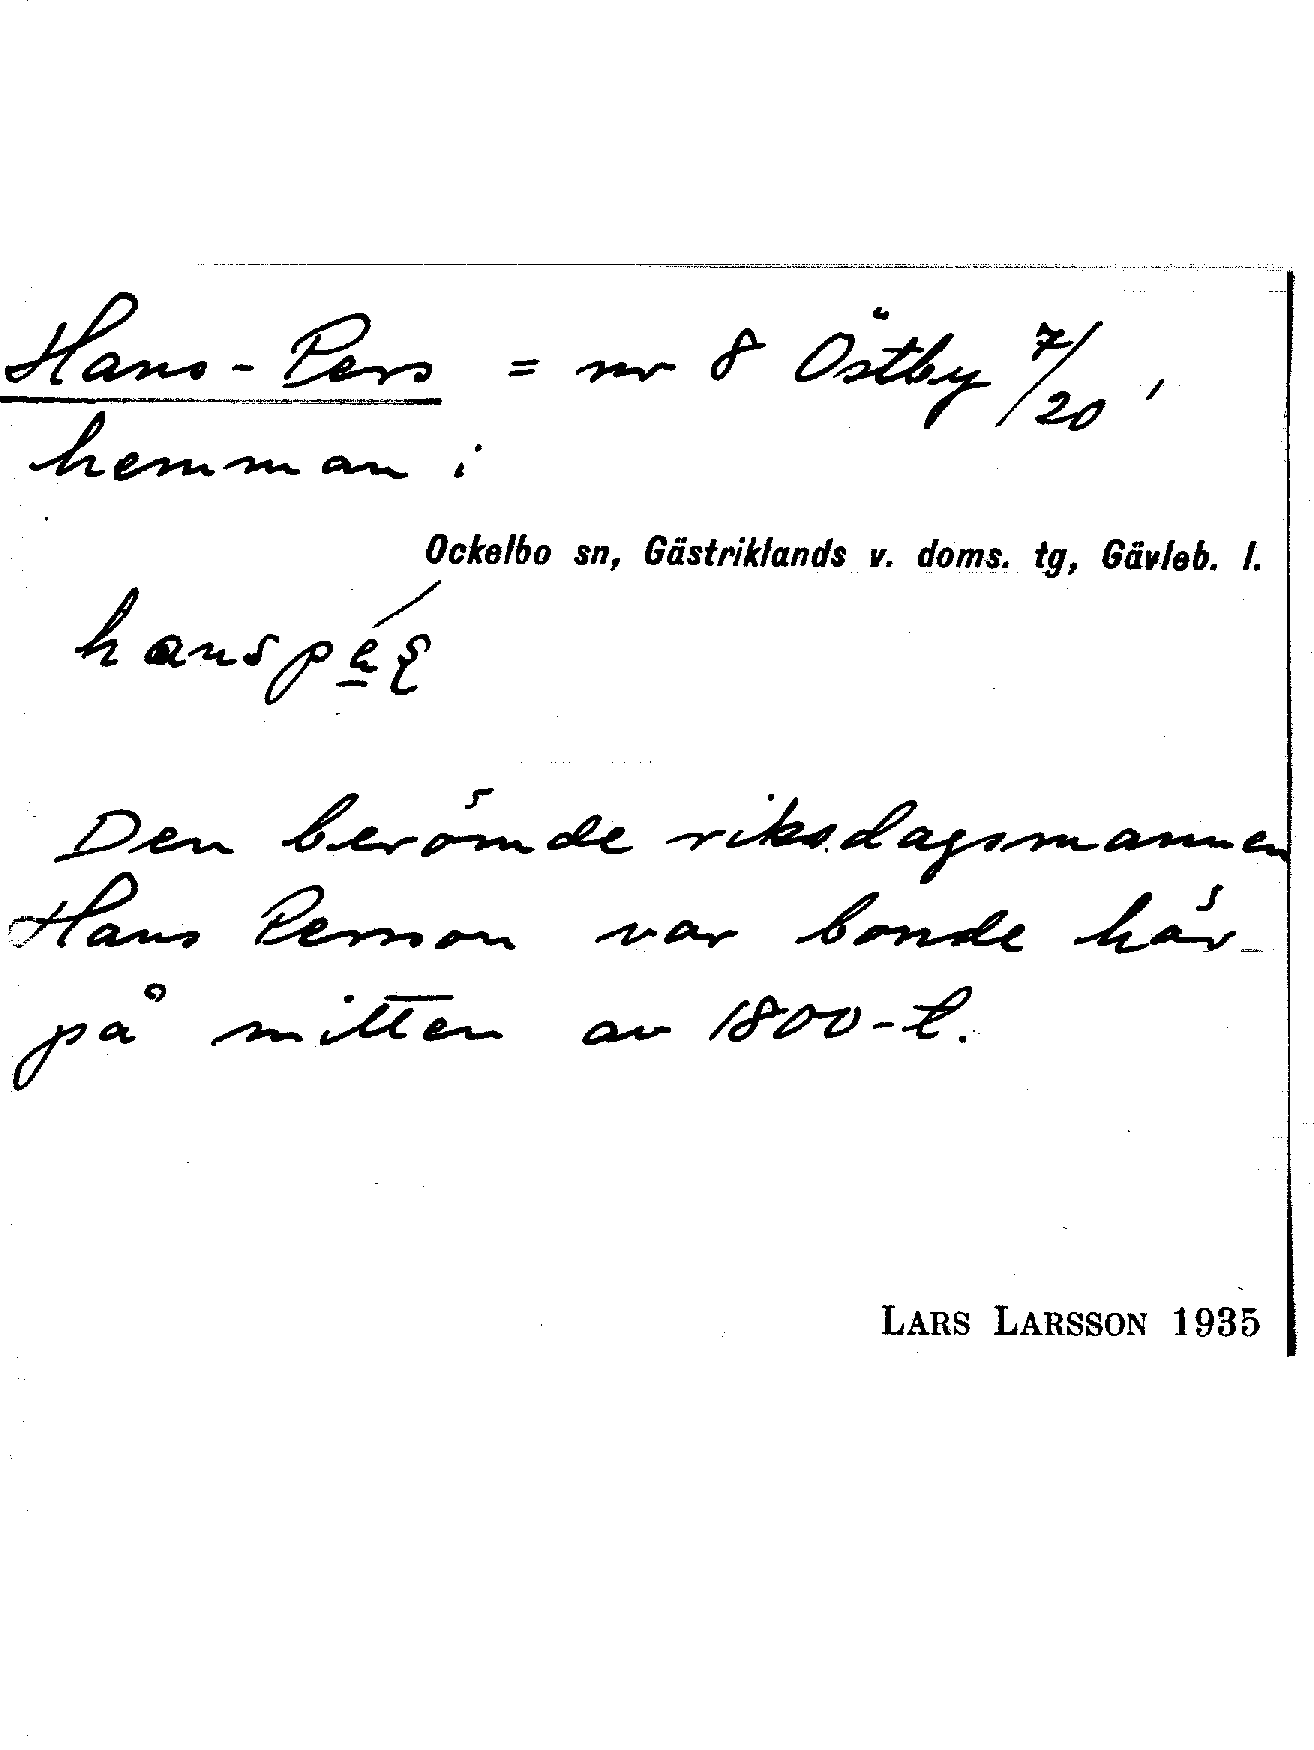 Hans-Pers = nr 8 Östby 7/20,
hemman i
Ockelbo sn, Gästriklands v. doms. tg, Gävleb. l.
Den berömde riksdagsmannen
Hans Persson var bonde här
på mitten av 1800-t.
LARS LARSSON 1935